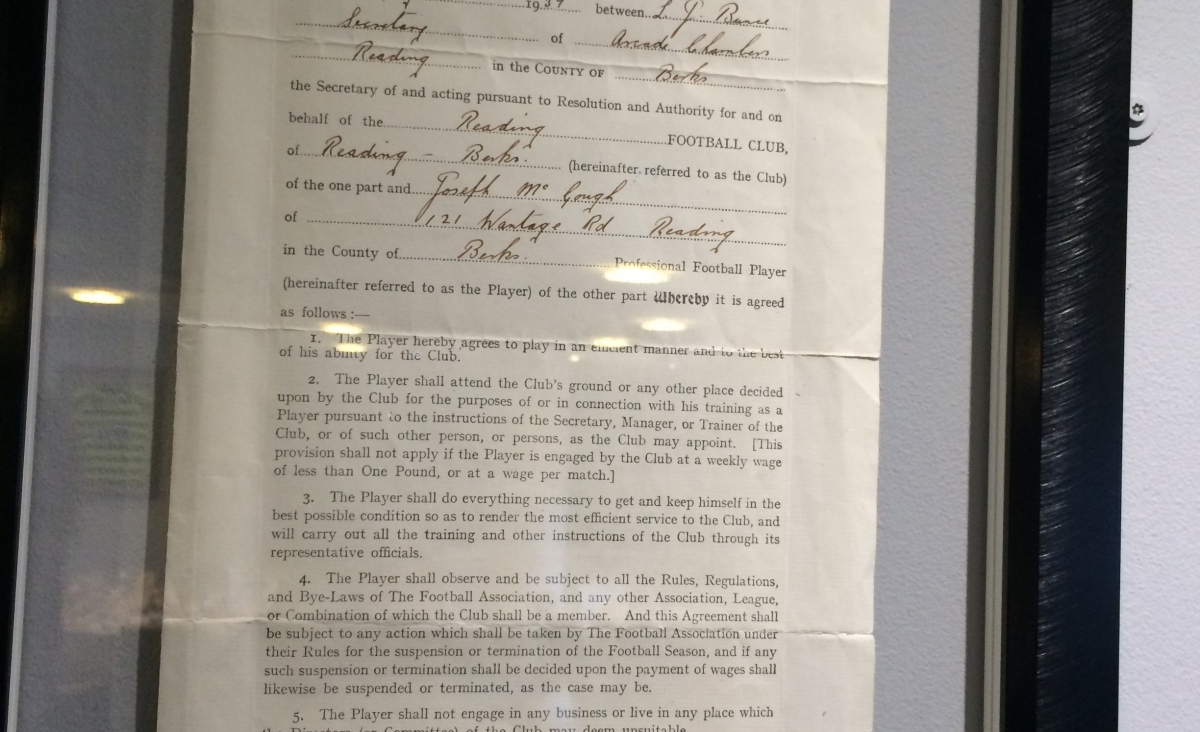 1937 between L. J. Bunce
Secretary of Arcade Chambers
Reading in the COUNTY OF Berks
the Secretary of and acting pursuant to Resolution and Authority for and on
behalf of the Reading FOOTBALL CLUB,
of Reading - Berks. (hereinafter referred to as the Club)
of the one part and Joseph Mc Gough
of 121 Wantage Rd Reading
in the County of Berks. Professional Football Player
(hereinafter referred to as the Player) of the other part Whereby it is agreed
as follows :—
1. The Player hereby agrees to play in an efficient manner and to the best
of his ability for the Club.
2. The Player shall attend the Club's ground or any other place decided
upon by the Club for the purposes of or in connection with his training as a
Player pursuant to the instructions of the Secretary, Manager, or Trainer of the
Club, or of such other person, or persons, as the Club may appoint. [This
provision shall not apply if the Player is engaged by the Club at a weekly wage
of less than One Pound, or at a wage per match.]
3. The Player shall do everything necessary to get and keep himself in the
best possible condition so as to render the most efficient service to the Club, and
will carry out all the training and other instructions of the Club through its
representative officials.
4. The Player shall observe and be subject to all the Rules, Regulations,
and Bye-Laws of The Football Association, and any other Association, League,
or Combination of which the Club shall be a member. And this Agreement shall
be subject to any action which shall be taken by The Football Association under
their Rules for the suspension or termination of the Football Season, and if any
such suspension or termination shall be decided upon the payment of wages shall
likewise be suspended or terminated, as the case may be.
5. The Player shall not engage in any business or live in any place which
the Directors (or Committee) of the Club may deem unsuitable.